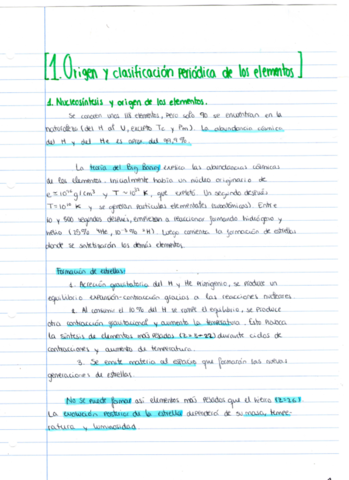 [1. Origen y clasificación periódica de los elementos]
1. Nucleosíntesis y origen de los elementos.
Se conocen unos 111 elementos, pero solo 90 se encuentran en la
naturaleza (del H al U, excepto Tc y Pm). La abundancia cósmica
del H y del He es de
La teoría del Big Bang explica las abundancias cósmicas
de los elementos. Inicialmente había un núcleo originario de
g/cm³ y T K, que explotó. Un segundo después
T = 10¹⁰ K y se operan partículas elementales Entre
10 y 500 segundos después, empiezan a reaccionar formando hidrógeno y
helio (25% ⁴He, ²H). Luego comienza la formación de estrellas
donde se sintetizarán los demás elementos.
Formación de estrellas:
1. Acreción gravitatoria del H y He Se produce un
equilibrio expansión-contracción gracias a las reacciones nucleares.
2. Al consumir el 10% del H se rompe el equilibrio, se produce
otra contracción gravitacional y aumenta la temperatura. Esto provoca
la síntesis de elementos más pesados durante ciclos de
contracciones y aumento de temperatura.
3. Se emite materia al espacio que formarán las nuevas
generaciones de estrellas.
No se puede formar así elementos más pesados que el hierro (Z=26)
La evolución posterior de la estrella dependerá de su masa, tempe-
ratura y luminosidad